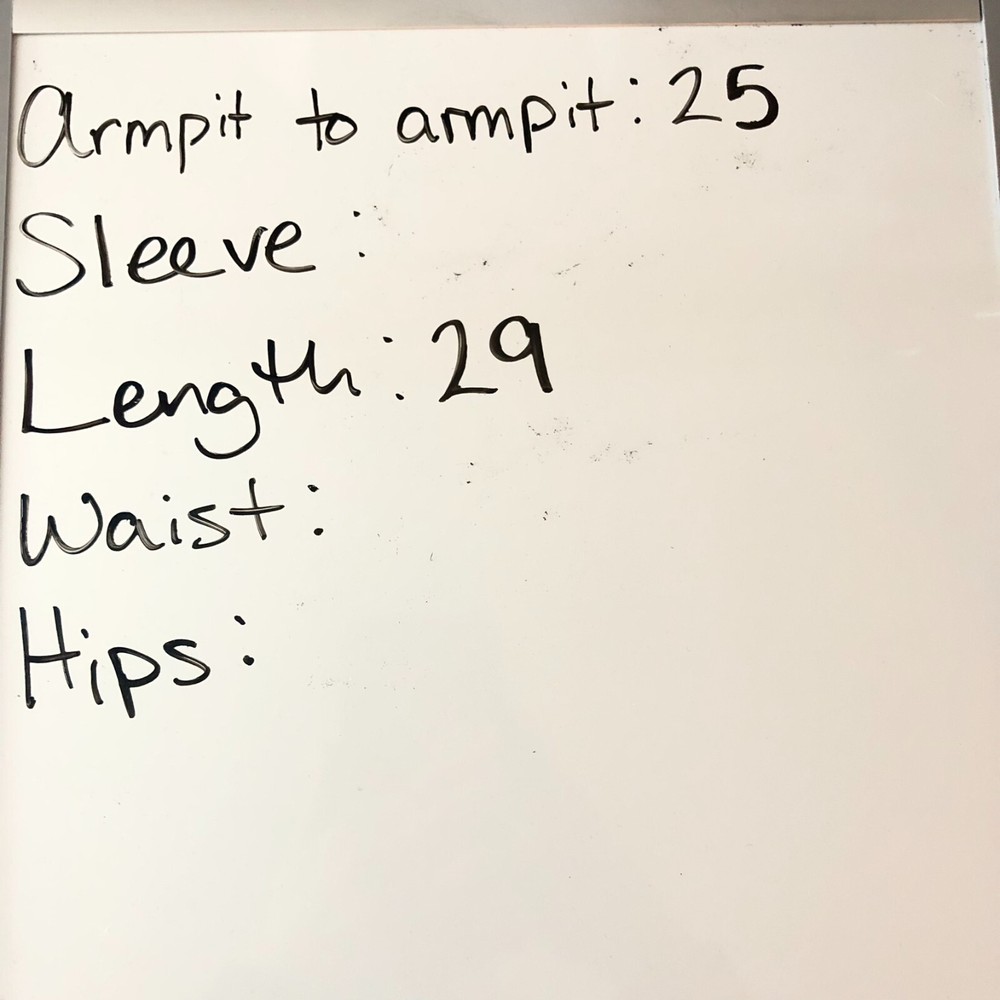 Armpit to armpit: 25
Sleeve:
Length: 29
Waist:
Hips: